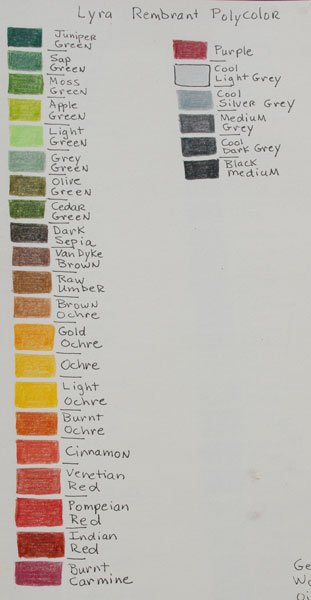 Lyra Rembrant Polycolor
Juniper
Green
Sap
Green
Moss
Green
Apple
Green
Light
Green
Grey
Green
Olive
Green
Cedar
Green
Dark
Sepia
VanDyke
Brown
Raw
Umber
Brown
Ochre
Gold
Ochre
Ochre
Light
Ochre
Burnt
Ochre
Cinnamon
Venetian
Red
Pompeian
Red
Indian
Red
Burnt
Carmine
Purple
Cool
Light Grey
Cool
Silver Grey
Medium
Grey
Cool
Dark Grey
Black
Medium